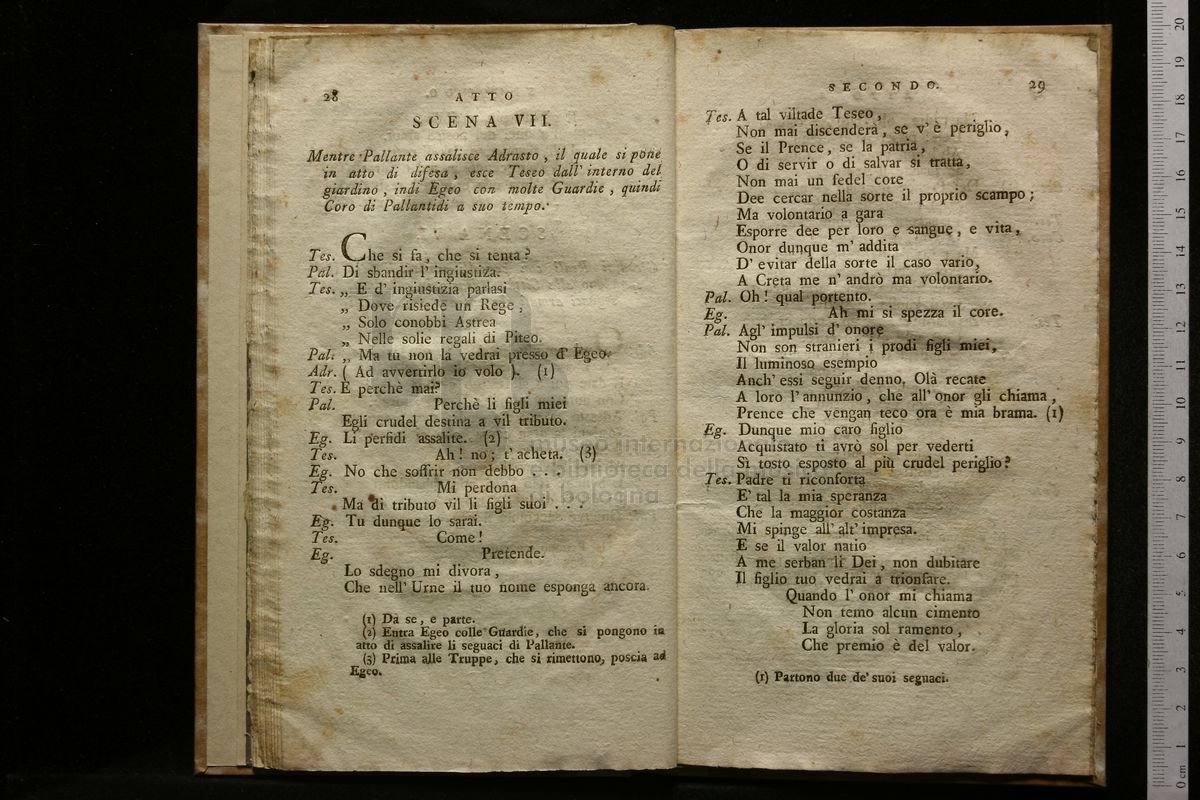 28
ATTO
SCENA VII.
Mentre Pallante assalisce Adrasto, il quale si pone
in atto di difesa, esce Teseo dall' interno del
giardino, indi Egeo con molte Guardie, quindi
Coro di Pallantidi a suo tempo.
Tes. Che si fa, che si tenta?
Pal. Di sbandir l' ingiustiza.
Tes. „ E d' ingiustizia parlasi
„ Dove risiede un Rege,
„ Solo conobbi Astrea
„ Nelle solie regali di Piteo.
Pal. „ Ma tu non la vedrai presso d' Egeo.
Adr. ( Ad avvertirlo io volo ). (1)
Tes. E perchè mai?
Pal. Perchè li figli miei
Egli crudel destina a vil tributo.
Eg. Li perfidi assalite. (2)
Tes. Ah! no; t' acheta. (3)
Eg. No che soffrir non debbo . . .
Tes. Mi perdona
Ma di tributo vil li figli suoi . . .
Eg. Tu dunque lo sarai.
Tes. Come!
Eg. Pretende.
Lo sdegno mi divora,
Che nell' Urne il tuo nome esponga ancora.
(1) Da se, e parte.
(2) Entra Egeo colle Guardie, che si pongono in
atto di assalire li seguaci di Pallante.
(3) Prima alle Truppe, che si rimettono, poscia ad
Egeo.
SECONDO.
29
Tes. A tal viltade Teseo,
Non mai discenderà, se v' è periglio,
Se il Prence, se la patria,
O di servir o di salvar si tratta,
Non mai un fedel core
Dee cercar nella sorte il proprio scampo;
Ma volontario a gara
Esporre dee per loro e sangue, e vita,
Onor dunque m' addita
D' evitar della sorte il caso vario,
A Creta me n' andrò ma volontario.
Pal. Oh! qual portento.
Eg. Ah mi si spezza il core.
Pal. Agl' impulsi d' onore
Non son stranieri i prodi figli miei,
Il luminoso esempio
Anch' essi seguir denno. Olà recate
A loro l' annunzio, che all' onor gli chiama,
Prence che vengan teco ora è mia brama. (1)
Eg. Dunque mio caro figlio
Acquistato ti avrò sol per vederti
Sì tosto esposto al più crudel periglio?
Tes. Padre ti riconforta
E' tal la mia speranza
Che la maggior costanza
Mi spinge all' alt' impresa.
E se il valor natio
A me serban li Dei, non dubitare
Il figlio tuo vedrai a trionfare.
Quando l' onor mi chiama
Non temo alcun cimento
La gloria sol ramento,
Che premio è del valor.
(1) Partono due de' suoi seguaci.